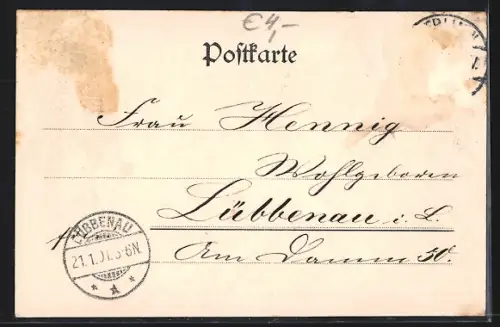 €4,-
Postkarte
Frau Hennig
Wohlgeboren
Lübbenau i. L.
Am Damm
LÜBBENAU
21.1.01.